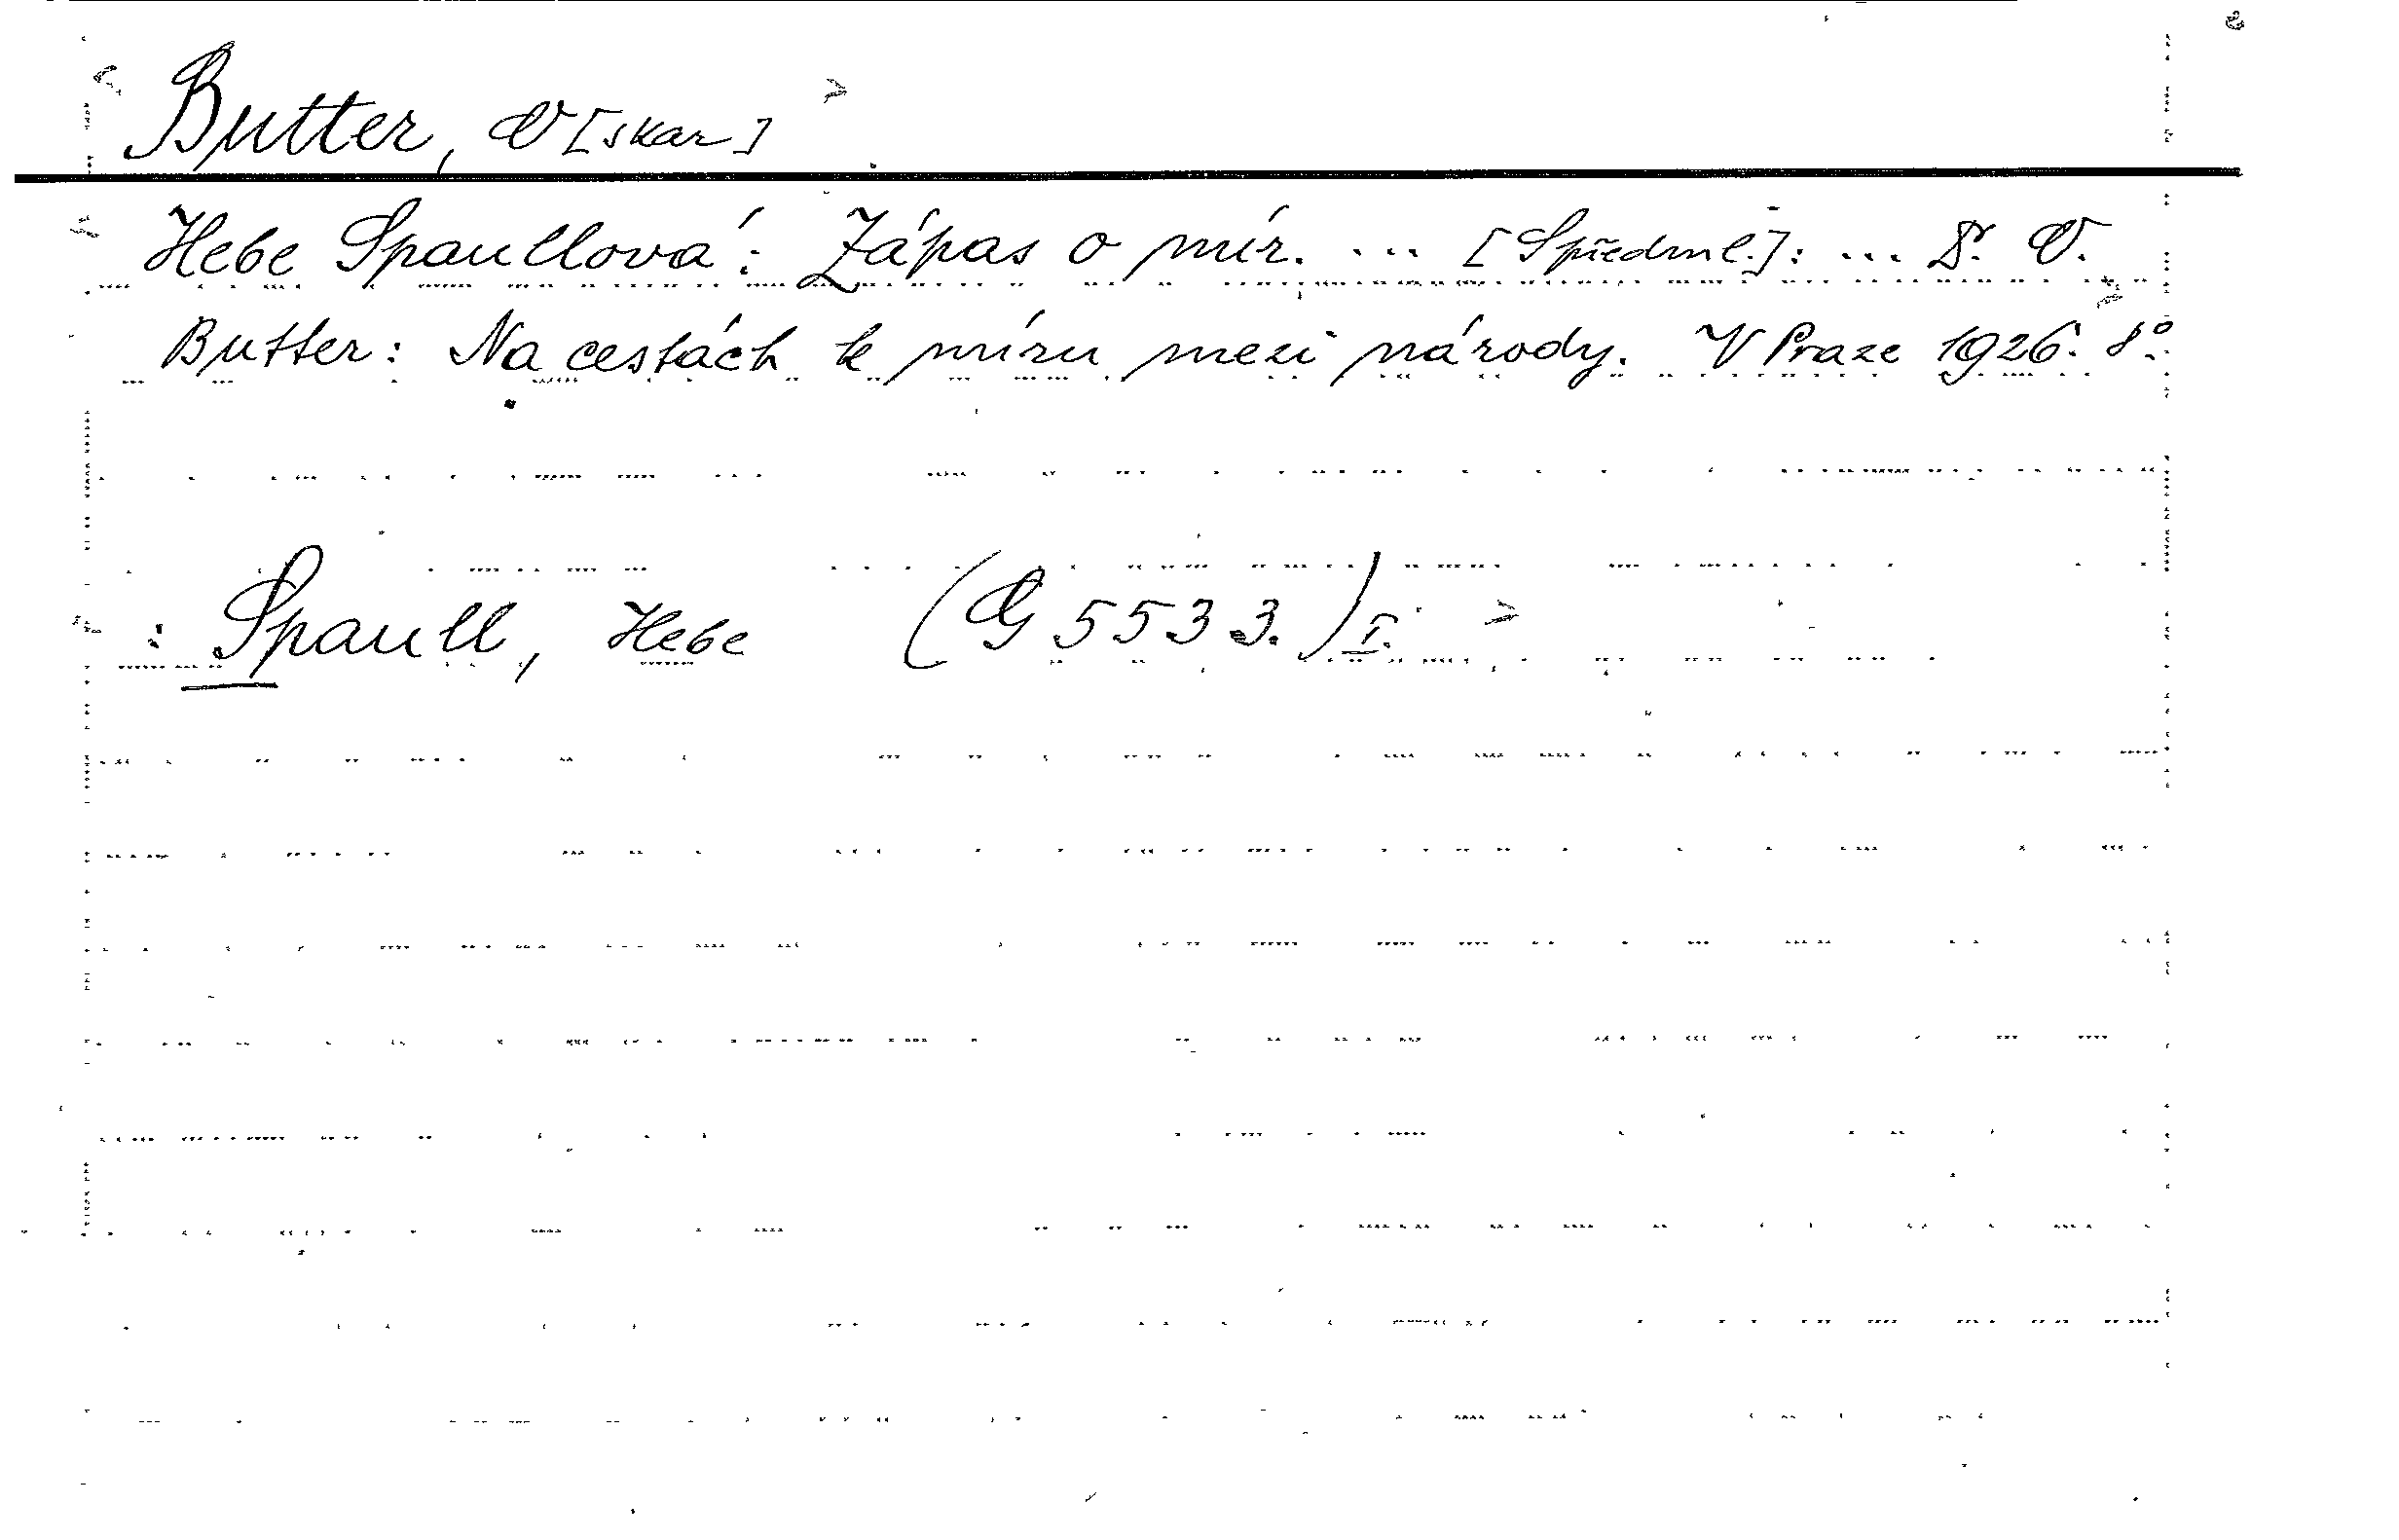 Butter, O[skar]
Hebe Spaullová: Zápas o mír. ... [S předml.]: ... Dr. O.
Butter: Na cestách k míru mezi národy. V Praze 1926. 8°.
: Spaull, Hebe (G 5533.) I.